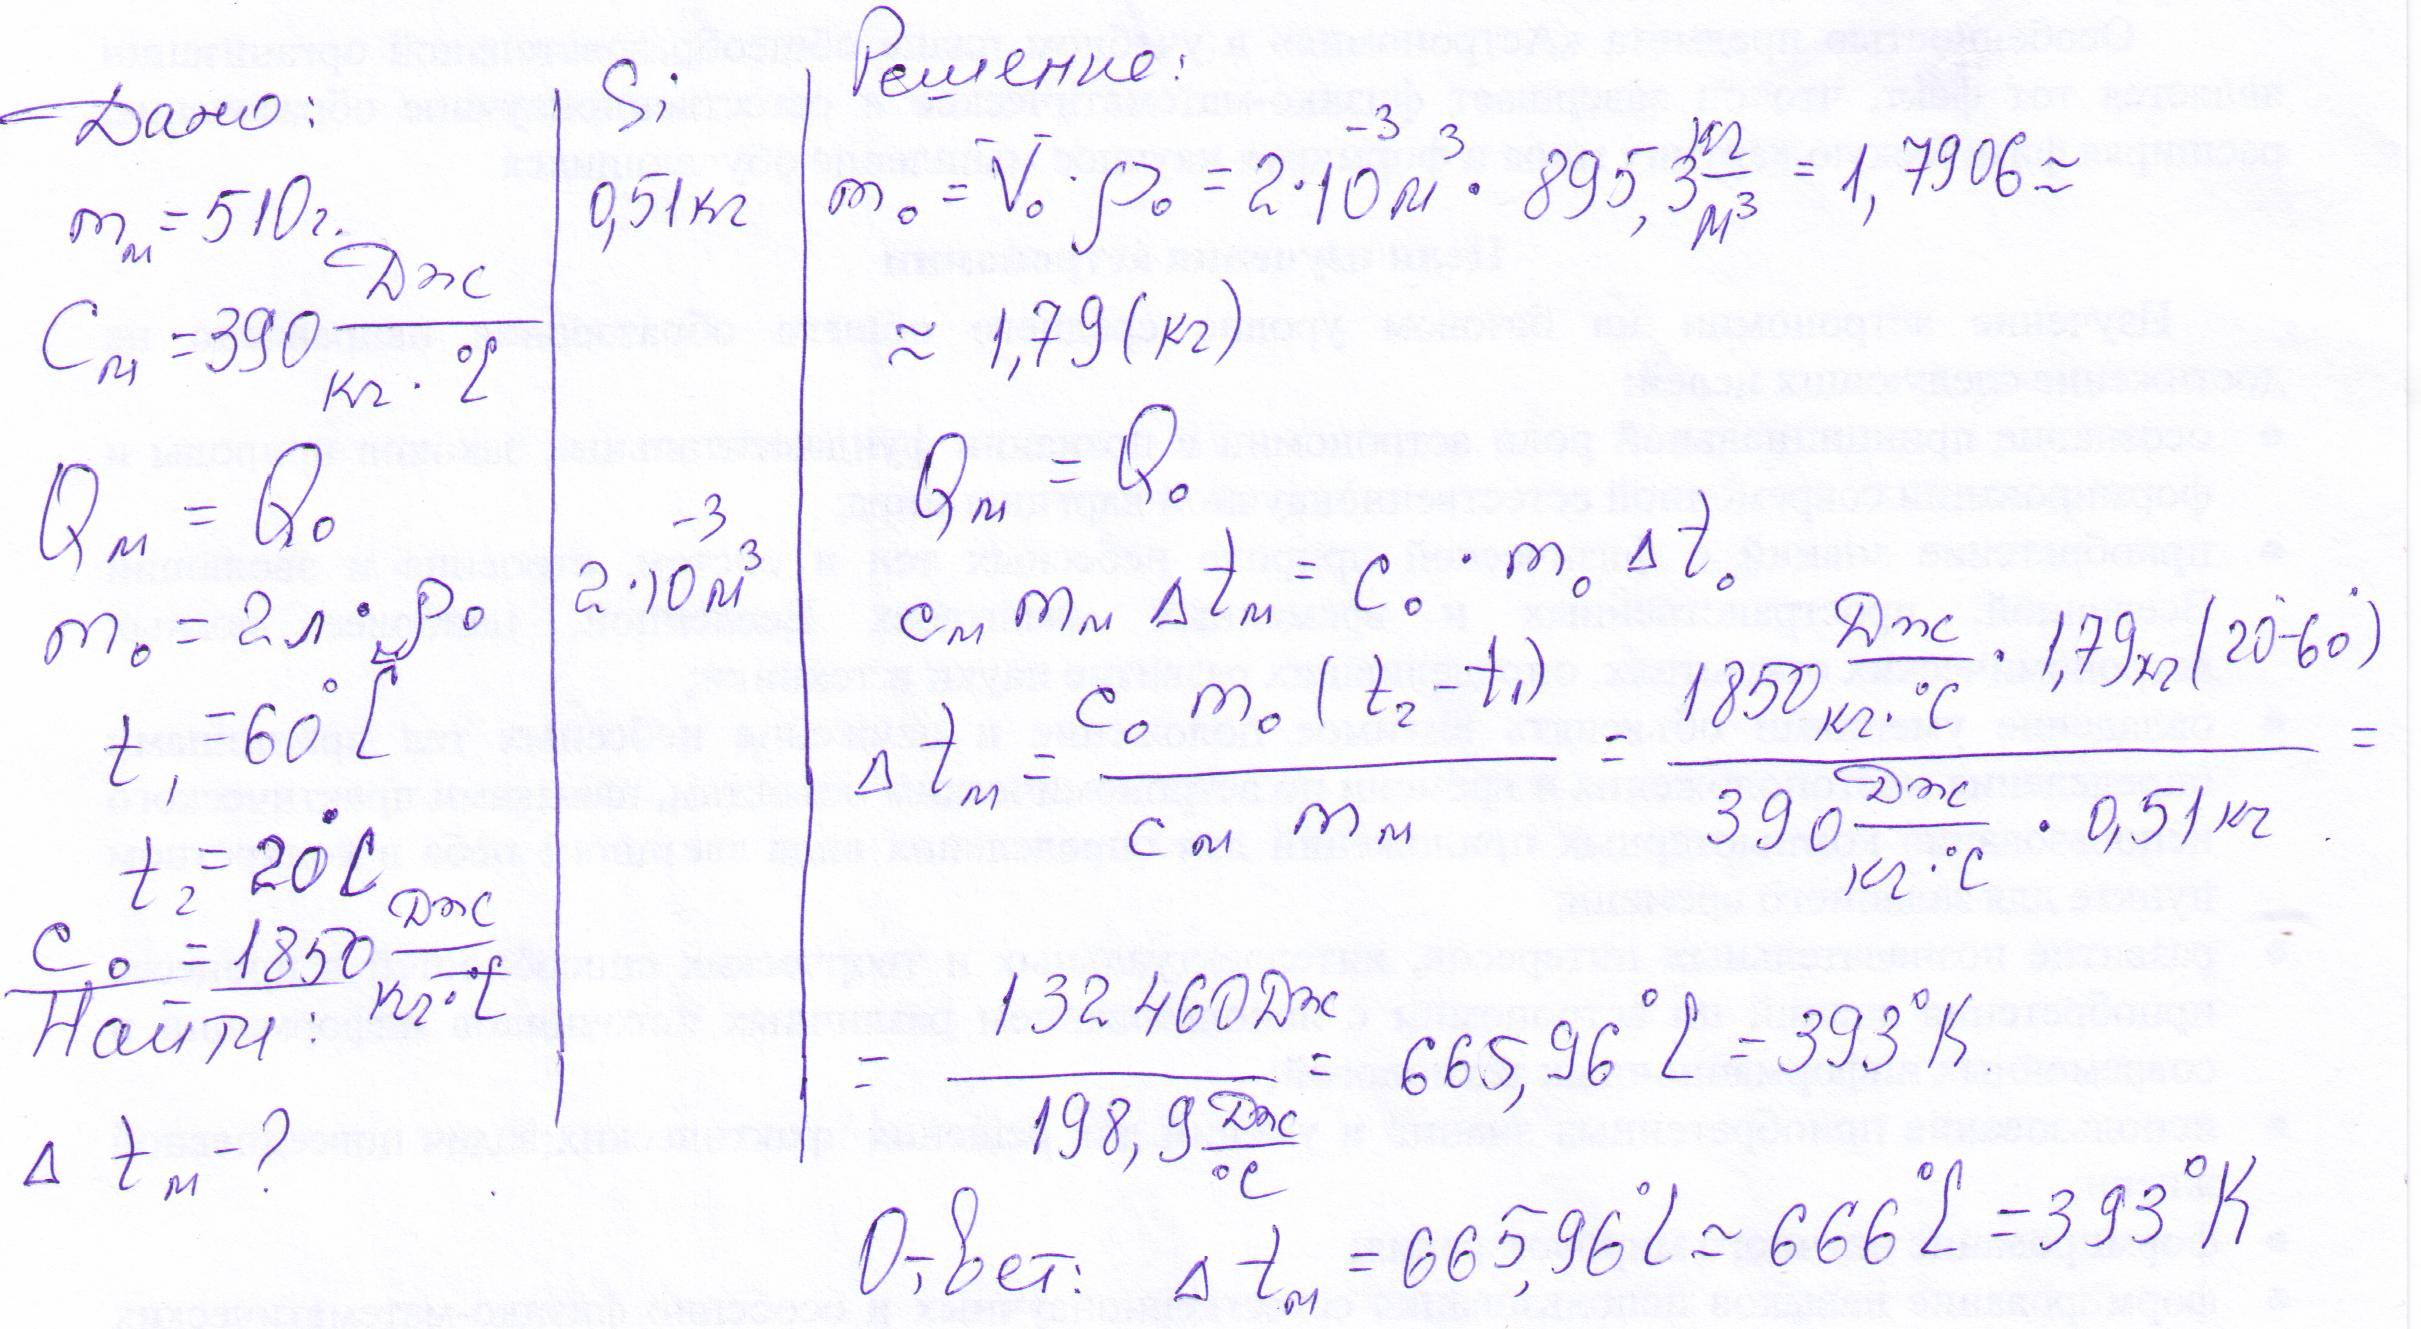 Дано:
m_м = 510г.
C_м = 390 Дж/(кг · °C)
Q_м = Q_о
m_о = 2л · ρ_о
t_1 = 60°C
t_2 = 20°C
c_о = 1850 Дж/(кг · °C)
Найти:
Δ t_м - ?
Si
0,51кг
2·10^-3 м^3
Решение:
m_о = V_о · ρ_о = 2·10^-3 м^3 · 895,3 кг/м^3 = 1,7906 ≈
≈ 1,79 (кг)
Q_м = Q_о
c_м m_м Δ t_м = c_о · m_о Δ t_о
Δ t_м = c_о m_о (t_2 - t_1) / c_м m_м = 1850 Дж/(кг·°C) · 1,79кг (20° - 60°) / 390 Дж/(кг·°C) · 0,51кг =
= 132460Дж / 198,9 Дж/°C = 665,96°C = 393°K
Ответ: Δ t_м = 665,96°C ≈ 666°C = 393°K